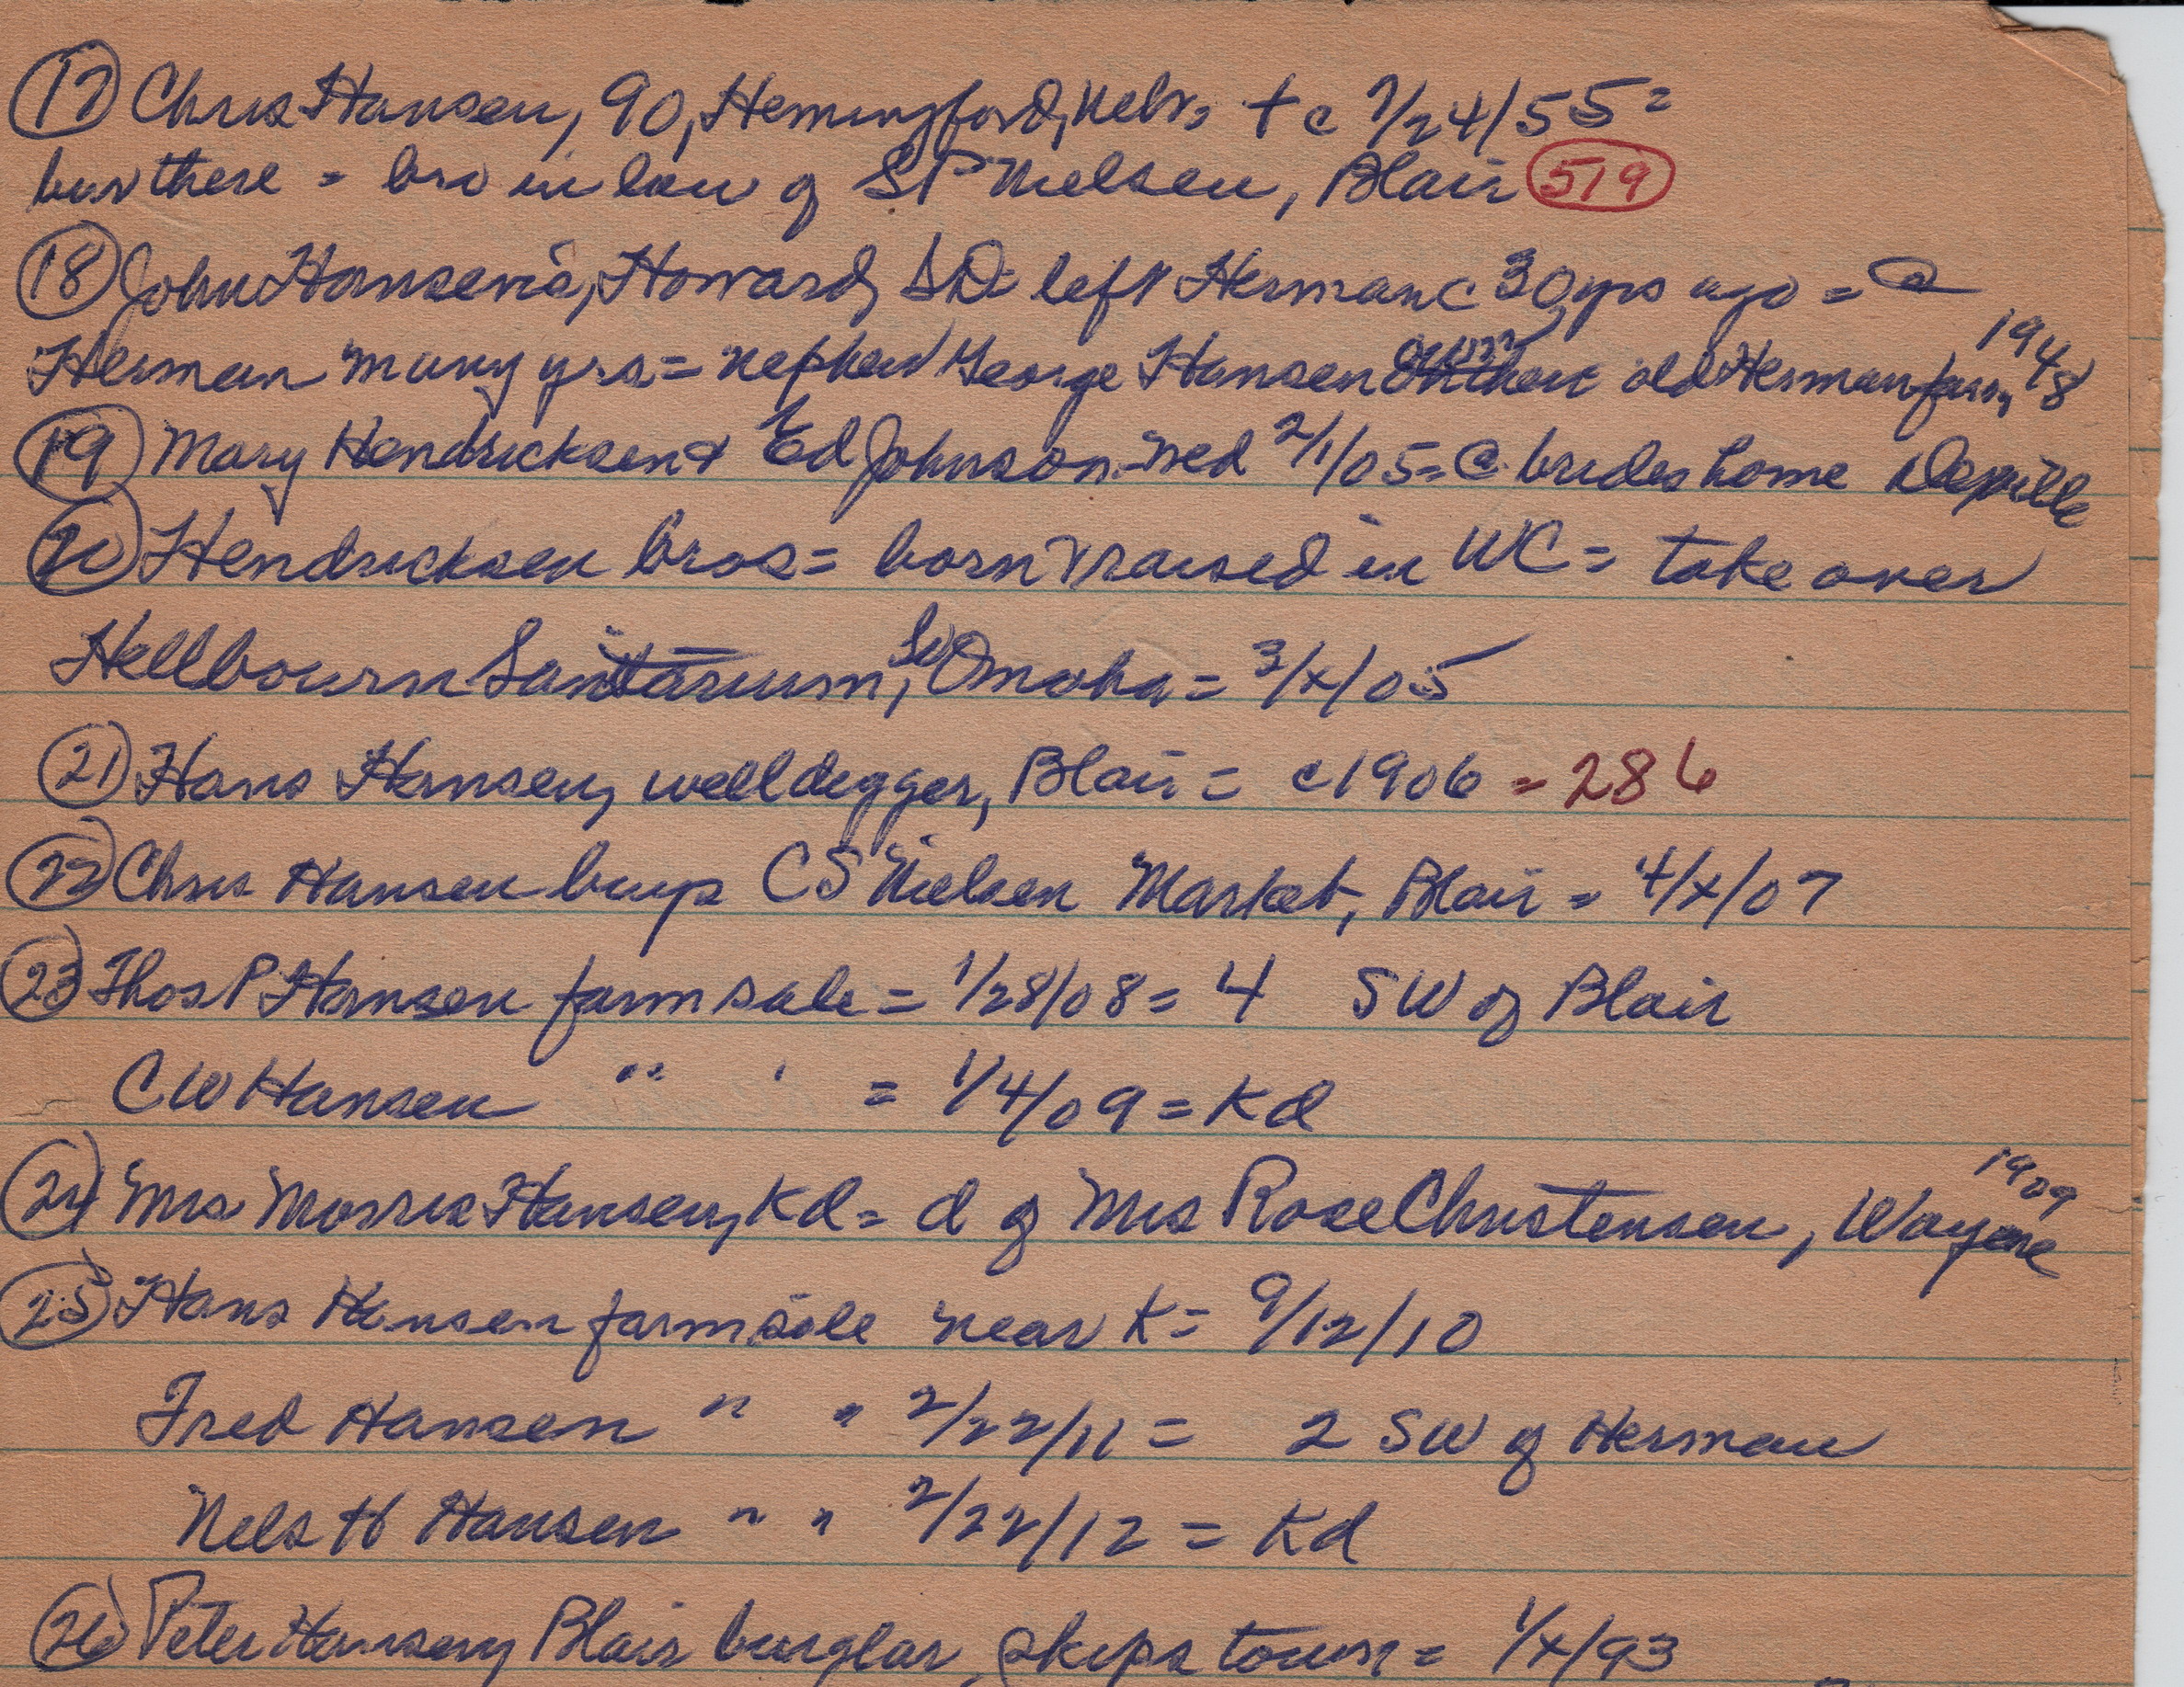 (17) Chris Hansen, 90, Hemingford, Nebr. + c 7/24/55 =
bur there = bro in law of SP Nielsen, Blair (519)
(18) John Hansen's, Howard, SD = left Herman c 30 yrs ago = @
Herman many yrs = nephew George Hansen own old Herman farm 1948
(19) Mary Hendricksen & Ed Johnson = wed 2/1/05 = @ brides home
(20) Hendricksen bros = born & raised in WC = take over
Hellbourn Sanitarium, So Omaha = 3/x/05
(21) Hans Hansen, welldigger, Blair = c1906 = 286
(22) Chris Hansen buys CS Nielsen Market, Blair = 4/x/07
(23) Thos P Hansen farm sale = 1/28/08 = 4 SW of Blair
CW Hansen " " = 1/4/09 = Kd
(24) Mrs Morris Hansen, Kd = d of Mrs Rose Christensen, Wayne 1909
(25) Hans Hansen farm sale near K = 9/12/10
Fred Hansen " " 2/22/11 = 2 SW of Herman
Nels H Hansen " " 2/22/12 = Kd
(26) Peter Hansen, Blair burglar, skips town = 1/x/93